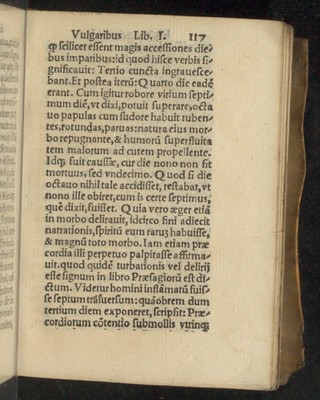 Vulgaribus Lib. I. 117
ꝙ scilicet essent magis accessiones die-
bus imparibus: id quod hisce verbis si-
gnificauit: Tertio cuncta ingrauesce-
bant. Et postea iterũ: Quarto die eadẽ
erant. Cum igitur robore virium septi-
mum diẽ, vt dixi, potuit superare, octa
uo papulas cum sudore habuit ruben-
tes, rotundas, paruas: natura eius mor-
bo repugnante, & humorũ superfluita
tem maiorum ad cutem propellente.
Idq; fuit caussæ, cur die nono non sit
mortuus, sed vndecimo. Quod si die
octauo nihil tale accidisset, restabat, vt
nono ille obiret, cum is certe septimus,
quẽ dixit, fuisset. Quia vero æger etiã
in morbo delirauit, idcirco fini adiecit
narrationis, spiritũ eum rarũ habuisse,
& magnũ toto morbo. Iam etiam præ
cordia illi perpetuo palpitasse affirma-
uit. quod quidẽ turbationis vel delirij
esse signum in libro Præsagiorũ est di-
ctum. Videtur homini inflãmatũ fuis-
se septum trãsuersum: quãobrem dum
tertium diem exponeret, scripsit: Præ-
cordiorum cõtentio submollis vtrinq;